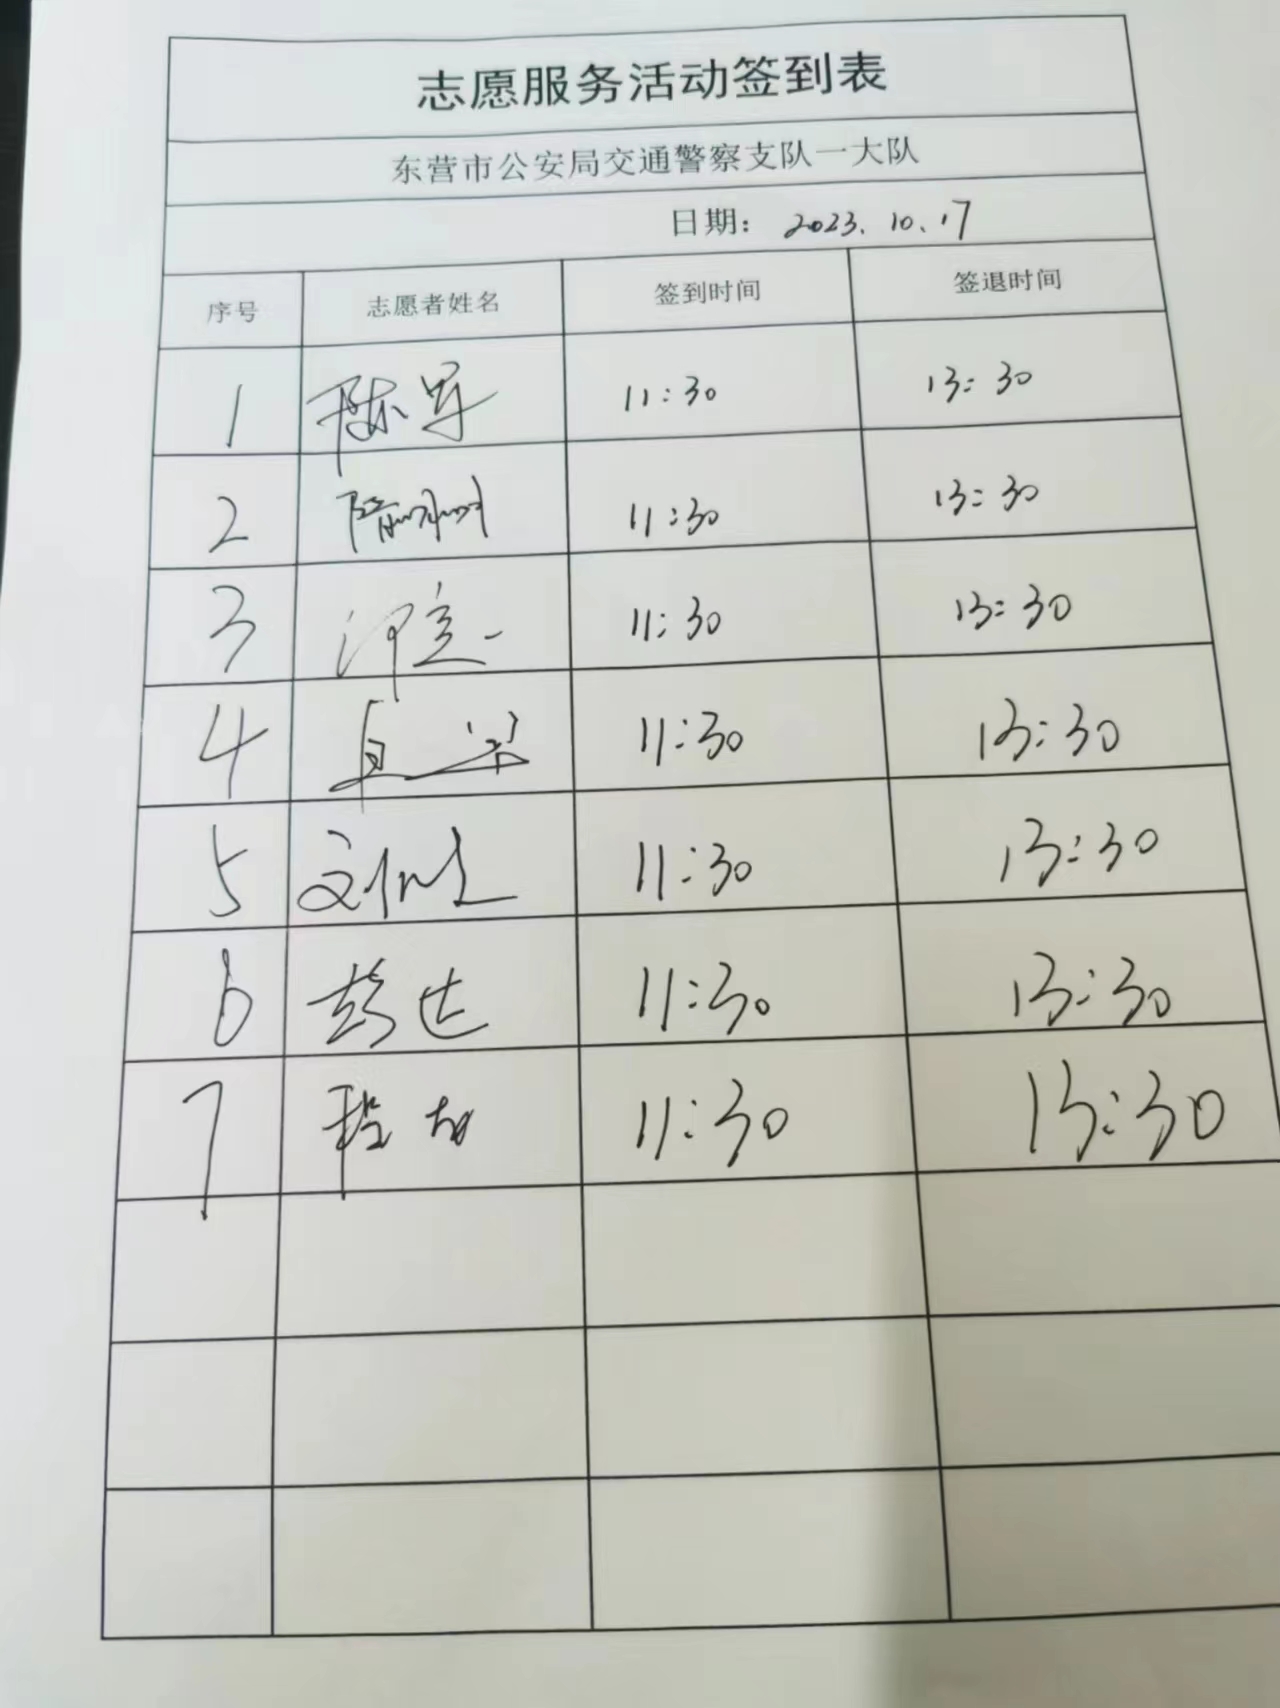 志愿服务活动签到表
东营市公安局交通警察支队一大队
日期： 2023.10.17
序号 志愿者姓名 签到时间 签退时间
1 陈军 11:30 13:30
2 11:30 13:30
3 11:30 13:30
4 11:30 13:30
5 11:30 13:30
6 彭达 11:30 13:30
7 11:30 13:30